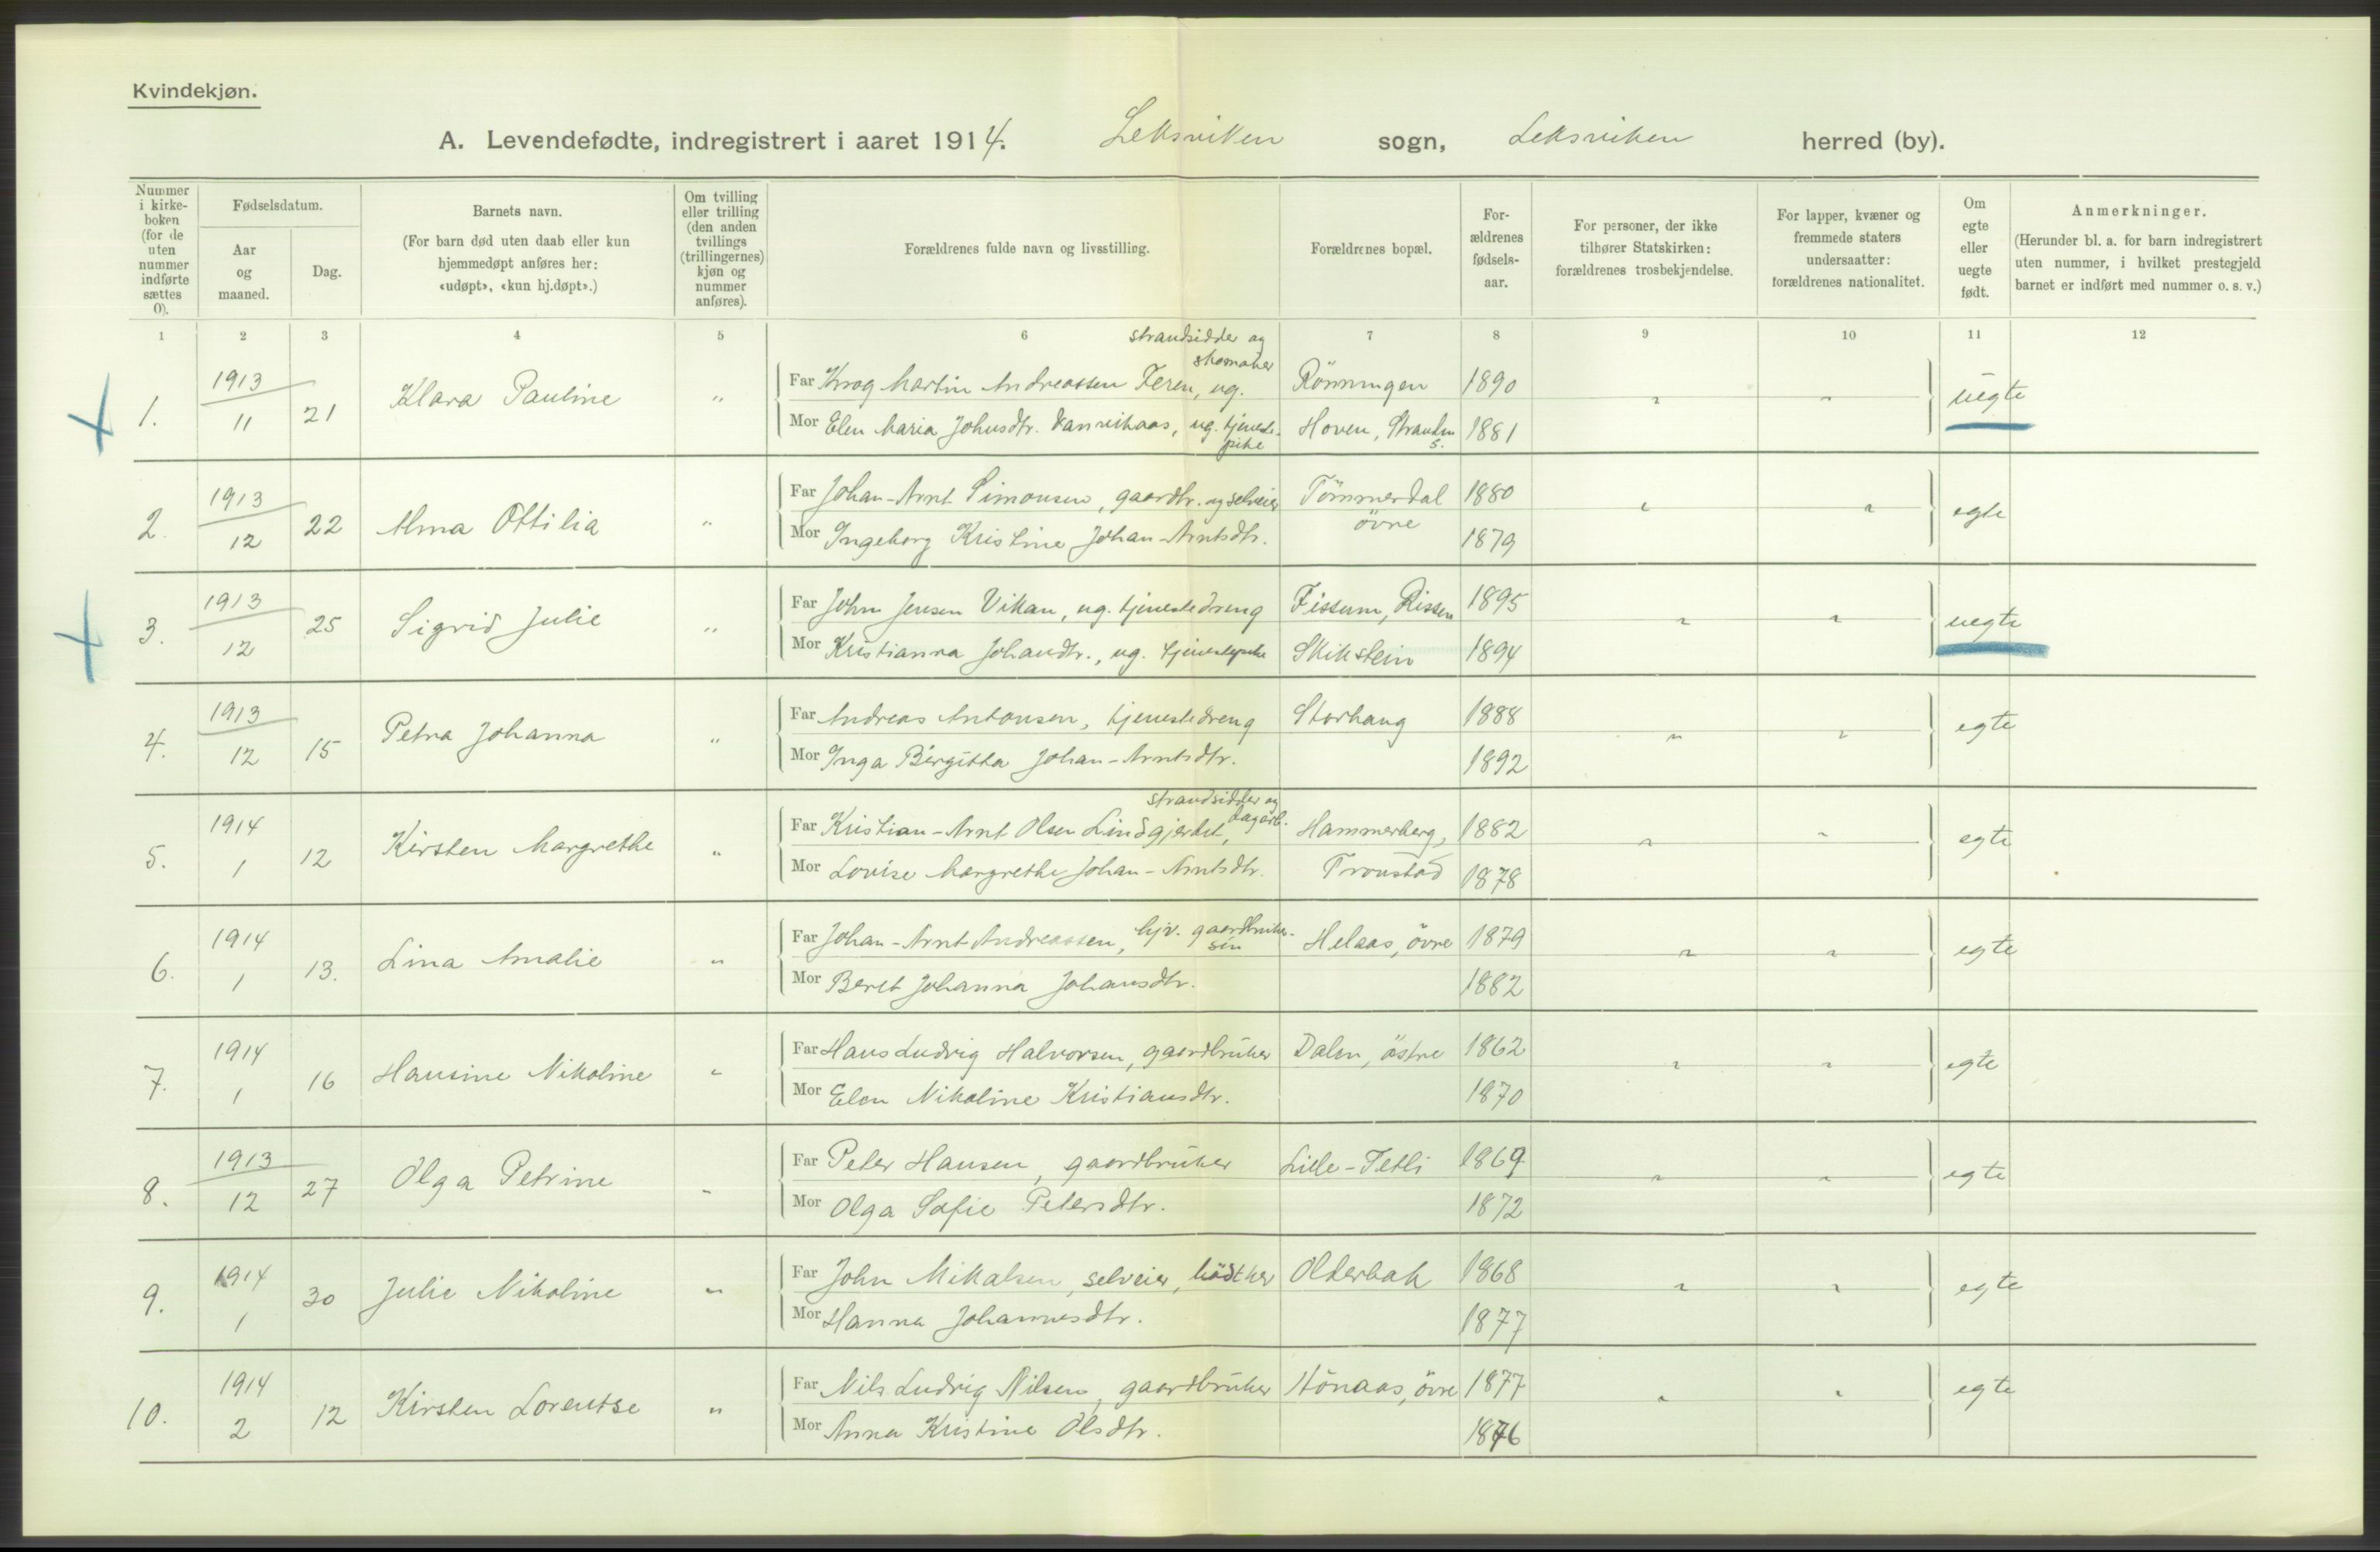 Kvindekjøn.
A. Levendefødte, indregistrert i aaret 1914. Leksviken sogn, Leksviken herred (by).
Nummer i kirke-boken (for de uten nummer indførte sættes 0).
Fødselsdatum.
Aar og maaned.
Dag.
Barnets navn.
(For barn død uten daab eller kun hjemmedøpt anføres her: «udøpt», «kun hj.døpt».)
Om tvilling eller trilling (den anden tvillings (trillingernes) kjøn og nummer anføres).
Forældrenes fulde navn og livsstilling.
Forældrenes bopæl.
For-ældrenes fødsels-aar.
For personer, der ikke tilhører Statskirken: forældrenes trosbekjendelse.
For lapper, kvæner og fremmede staters undersaatter: forældrenes nationalitet.
Om egte eller uegte født.
Anmerkninger.
(Herunder bl. a. for barn indregistrert uten nummer, i hvilket prestegjeld barnet er indført med nummer o. s. v.)
1 2 3 4 5 6 7 8 9 10 11 12
strandsidder og skomaker
1. 1913 11 21 Klara Pauline " Far Krog Martin Andreassen Feren, ug. Rönningen 1890 " " uegte
Mor Elen Maria Johnsdtr. Vannikaas, ug. tjeneste-pike Hoven, Stranden s. 1881
2. 1913 12 22 Alma Ottilia " Far Johan-Arnt Simonsen, gaardbr. og selveier Tömmerdal övre 1880 " " egte
Mor Ingeborg Kristine Johan-Arntsdtr. 1879
3. 1913 12 25 Sigrid Julie " Far John Jensen Vikan, ug. tjenestedreng Fissum, Rissen 1895 " " uegte
Mor Kristianna Johandtr., ug. tjenestepike Skikstein 1894
4. 1913 12 15 Petra Johanna " Far Andreas Antonsen, tjenestedreng Storhaug 1888 " " egte
Mor Inga Bergitta Johan-Arntsdtr. 1892
strandsidder og dagarb.
5. 1914 1 12 Kirsten Margrethe " Far Kristian-Arnt Olsen Lindgjerdet, Hammerberg, 1882 " " egte
Mor Lovise Margrethe Johan-Arntsdtr. Tronstad 1878
6. 1914 1 13. Lina Amalie " Far Johan-Arnt Andreassen, hjv. gaardbruker-sin Helaas, övre 1879 " " egte
Mor Beret Johanna Johansdtr. 1882
7. 1914 1 16 Hansine Nikoline " Far Hans Ludvig Halvorsen, gaardbruker Dalen, östre 1862 " " egte
Mor Elen Nikoline Kristiansdtr. 1870
8. 1913 12 27 Olga Petrine " Far Peter Hansen, gaardbruker Lille-Tetli 1869 " " egte
Mor Olga Sofie Petersdtr. 1872
9. 1914 1 30 Julie Nikoline " Far John Mikalsen, selveier, bödtker Olderbak 1868 " " egte
Mor Hanna Johannesdtr. 1877
10. 1914 2 12 Kirsten Lorentse " Far Nils Ludvig Nilsen, gaardbruker Hönaas, övre 1877 " " egte
Mor Anna Kristine Olsdtr. 1876